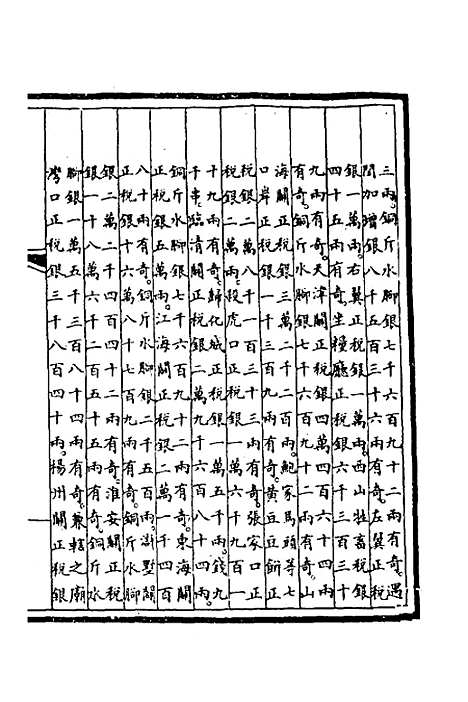 三兩銅斤水脚銀七千六百九十二兩有奇遇
閏加增銀八千五百三十六兩有奇左翼正税
銀一萬兩右翼正税銀一萬兩西山牲畜税銀
四十五兩有奇坐糧廳正税銀六千三百三十
九兩有奇天津關正税銀四萬四百六十四兩
有奇銅斤水脚銀七千六百九十二兩有奇山
海關正税銀三萬二千二百兩鮑家馬頭等七
口岸正税銀一千三百九兩有奇黄豆餅正
税銀八千一百三十三兩有奇張家口正
税銀二萬兩殺虎口正税銀一萬六千九百一
十九兩有奇歸化城正税銀一萬兩錢九
千串臨清關正税銀二萬九千六百八十四兩
銅斤水脚銀七千六百九十二兩有奇東海關
正税銀五萬兩江海關正税銀二萬一千四百
八十兩有奇銅斤水脚銀二千五百兩滸墅關
正税銀十六萬八十七百有奇銅斤水脚
銀二萬二千四百四十二兩有奇淮安關正税
銀一十八萬六千二百十五兩有奇銅斤水
脚銀一萬五千三百八十四兩有奇兼轄之廟
灣口正税銀三千八百四十兩揚州關正税銀